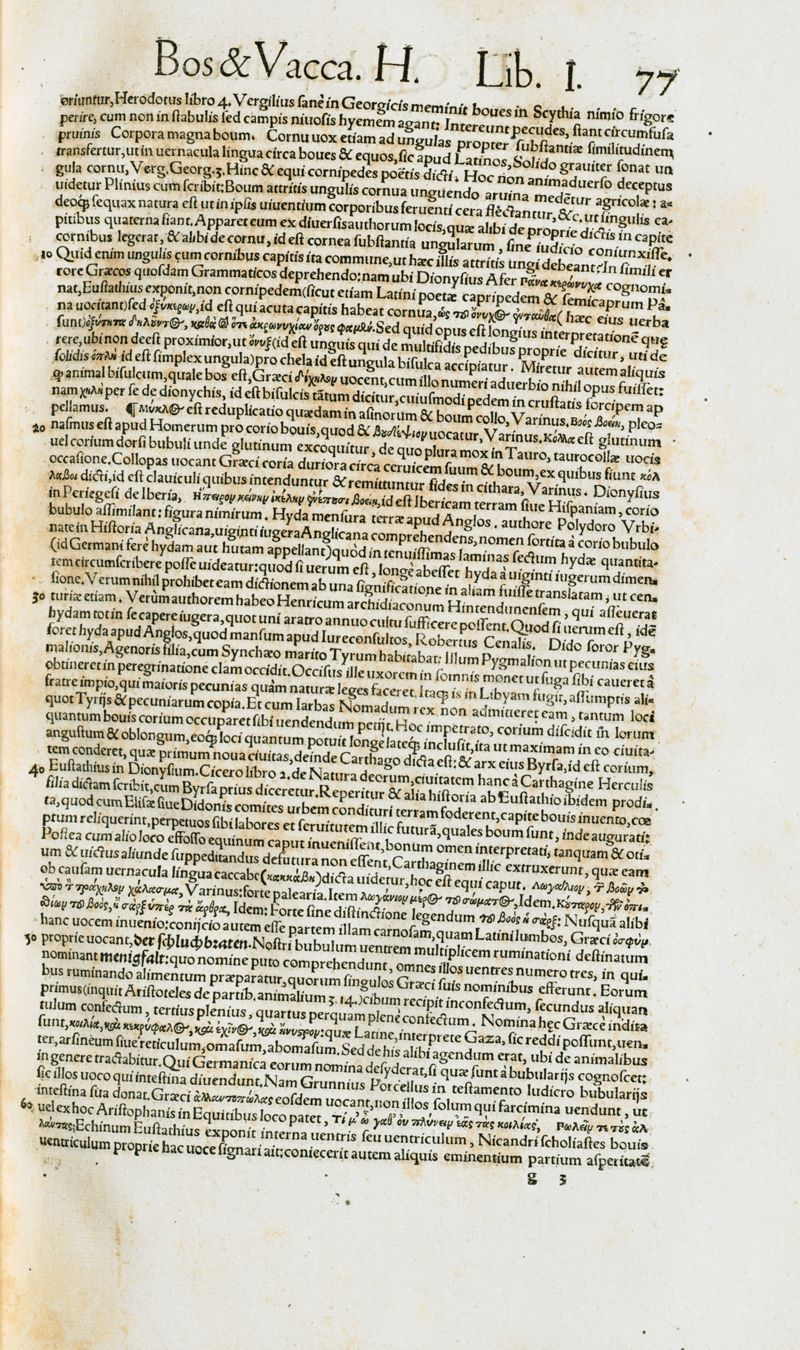 Bos & Vacca. H. Lib. I. 77
oriuntur, Herodotus libro 4. Vergilius sanè in Georgicis meminit boues in Scythia nimio frigore
perire, cum non in stabulis sed campis niuosis hyemem agant: Intereunt pecudes, stant circumfusa
pruinis Corpora magna boum. Cornu uox etiam ad ungulas propter substantiæ similitudinem
transfertur, ut in uernacula lingua circa boues & equos, sic apud Latinos, Solido grauiter sonat un
gula cornu, Verg. Georg. 3. Hinc & equi cornipedes poëtis dicti. Hoc non animaduerso deceptus
uidetur Plinius cum scribit: Boum attritis ungulis cornua unguendo aruina medetur agricolæ: a=
deoq́; sequax natura est ut in ipsis uiuentium corporibus feruenti cera flectantur, &c. ut singulis ca=
pitibus quaterna fiant. Apparet eum ex diuersis authorum locis, quæ alibi de proprie dictis in capite
cornibus legerat, & alibi de cornu, id est cornea substantia ungularum, sine iudicio coniunxisse.
10 Quid enim ungulis cum cornibus capitis ita commune, ut hæc illis attritis ungi debeant? In simili er
rore Græcos quosdam Grammaticos deprehendo: nam ubi Dionysius Afer cognomi=
nat, Eustathius exponit, non cornipedem (sicut etiam Latini poetæ capripedem & semicaprum Pâ=
na uocitant) sed ὀξύκερων, id est qui acuta capitis habeat cornua, (hæc eius uerba
sunt) Sed quid opus est longius interpretationē quę
rere, ubi non deest proximior, ut ὄνυξ (id est unguis qui de multifidis pedibus proprie dicitur, uti de
solidis ὁπλὴ id est simplex ungula) pro chela id est ungula bisulca accipiatur. Miretur autem aliquis
φ animal bisulcum, quale bos est, Græci δίχηλον uocent, cum illo numeri aduerbio nihil opus fuisset:
nam χηλὴ per se de dionychis, id est bisulcis tātum dicitur, cuiusmodi pedem in crustatis forcipem ap
pellamus. ¶ Μύκλος est reduplicatio quædam in asinorum & boum collo, Varinus. Βοὸς βοείη, pleo=
20 nasmus est apud Homerum pro corio bouis, quod & uocatur, Varinus. Κόλλα est glutinum
uel corium dorsi bubuli unde glutinum excoquitur, de quo plura mox in Tauro, taurocollæ uocis
occasione. Collopas uocant Græci coria duriora circa ceruicem suum & boum, ex quibus fiunt κολ
λαβοι dicti, id est clauiculi quibus intenduntur & remittuntur fides in cithara, Varinus. Dionysius
in Periegesi de Iberia, id est Ibericam terram siue Hispaniam, corio
bubulo assimilant: figura nimirum. Hyda mensura terræ apud Anglos. authore Polydoro Vrbi=
nate in Historia Anglicana, uiginti iugera Anglicana comprehendens, nomen sortita à corio bubulo
(id Germani ferè hydam aut hutam appellant) quòd in tenuissimas laminas sectum hydæ quantita=
tem circumscribere posse uideatur: quod si uerum est, longè abesset hyda à uiginti iugerum dimen=
sione. Verum nihil prohibet eam dictionem ab una significatione in aliam fuisse translatam, ut cen=
30 turiæ etiam. Verùm authorem habeo Henricum archidiaconum Hintendunensem, qui asseuerat
hydam tot in se capere iugera, quot uni aratro annuo cultu sufficere possent. Quod si uerum est, idē
foret hyda apud Anglos, quod mansum apud Iureconsultos, Robertus Cenalis. Dido soror Pyg=
malionis, Agenoris filia, cum Synchæo marito Tyrum habitabat: Illum Pygmalion ut pecunias eius
obtineret in peregrinatione clam occidit. Occisus ille uxorem in somnis monet ut fuga sibi caueret à
fratre impio, qui maioris pecunias quàm naturæ leges faceret. Itaq́; is in Libyam fugit, assumptis ali=
quot Tyrijs & pecuniarum copia. Et cum Iarbas Nomadum rex non admitteret eam, tantum loci
quantum bouis corium occuparet sibi uendendum petijt. Hoc impetrato, corium discidit in lorum
angustum & oblongum, eoq́; loci quantum potuit longe lateq́; inclusit, ita ut maximam in eo ciuita=
tem conderet, quæ primum noua ciuitas, deinde Carthago dicta est: & arx eius Byrsa, id est corium,
40 Eustathius in Dionysium. Cicero libro 2. de Natura deorum, ciuitatem hanc à Carthagine Herculis
filia dictam scribit, cum Byrsa prius diceretur. Reperitur & alia historia ab Eustathio ibidem prodi=
ta, quod cum Elisæ siue Didonis comites urbem condituri terram foderent, capite bouis inuento, cœ
ptum reliquerint, perpetuos sibi labores et seruitutem illic futurā, quales boum sunt, inde augurati:
Postea cum alio loco effosso equinum caput inuenissent, bonum omen interpretati, tanquam & oti=
um & uictus aliunde suppeditandus defutura non essent, Carthaginem illic extruxerunt, quæ eam
ob causam uernacula lingua caccabe (κακκάβη) dicta uidetur, hoc est equi caput. Λωγάλιον, τ̃ βοῶν τὸ
ὑπὸ τ̃ τράχηλον χάλασμα, Varinus: forte palearia. Item λωγάνιον μέρος τοῦ σώματος, Idem. Κόταρον,
τοῦ βοὸς, ἡ σὰρξ ὑπὲρ τὰ ἄρθρα, Idem: Forte sine distinctione legendum τοῦ βοὸς ἡ σάρξ: Nusquā alibi
hanc uocem inuenio: conijcio autem esse partem illam carnosam, quam Latini lumbos, Græci ὀσφὺν
50 proprie uocant, der schluch braten. Nostri bubulum uentrem multiplicem ruminationi destinatum
nominant menigfalt: quo nomine puto comprehendunt, omnes illos uentres numero tres, in qui=
bus ruminando alimentum præparatur, quorum singulos Græci suis nominibus efferunt. Eorum
primus (inquit Aristoteles de partib. animalium 3. 14.) cibum recipit inconfectum, secundus aliquan
tulum confectum, tertius plenius, quartus perquam plenè confectum. Nomina hęc Græcè indita
sunt, κοιλία, καὶ κεκρύφαλος, καὶ ἐχῖνος, καὶ ἤνυστρον: quæ Latine, interprete Gaza, sic reddi possunt, uen=
ter, arsineum siue reticulum, omasum, abomasum. Sed de his alibi agendum erat, ubi de animalibus
in genere tractabitur. Qui Germanica eorum nomina desyderat, si quæ sunt à bubularijs cognoscet:
sic illos uoco qui intestina diuendunt. Nam Grunnius Porcellus in testamento ludicro bubularijs
intestina sua donat. Græci ἀλλαντοπώλας eosdem uocant, non illos solum qui farcimina uendunt, ut
60 uel ex hoc Aristophanis in Equitibus loco patet, Τί μ' ὦ γαθ' οὐ πλύνειν ἐᾷς τὰς κοιλίας, Πωλεῖν τε τοὺς ἀλ
λάντας; Echinum Eustathius exponit interna uentris seu uentriculum, Nicandri scholiastes bouis
uentriculum proprie hac uoce signari ait: coniecerit autem aliquis eminentium partium asperitatē
g 3